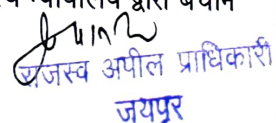 न्यायालय द्वारा
राजस्व अपील प्राधिकारी
जयपुर